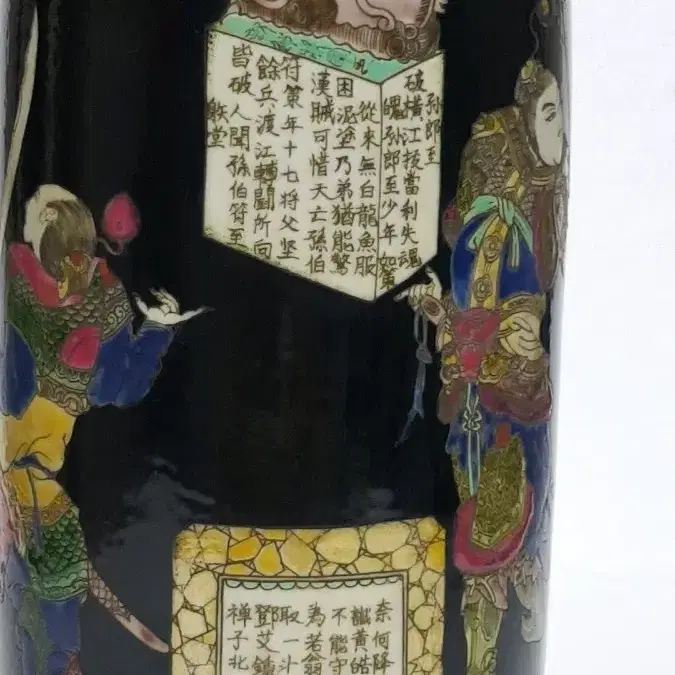 孫郎至
破橫江技當利失魂
魄孫郎至少年如策
從來無白龍魚服
困泥塗乃弟猶能驚
漢賊可惜天亡孫伯
符策年十七將父堅
餘兵渡江轉鬭所向
皆破人聞孫伯符至
堂
奈何降
黃皓
不能守
為若翁
取一斗
鄧艾
禪子北